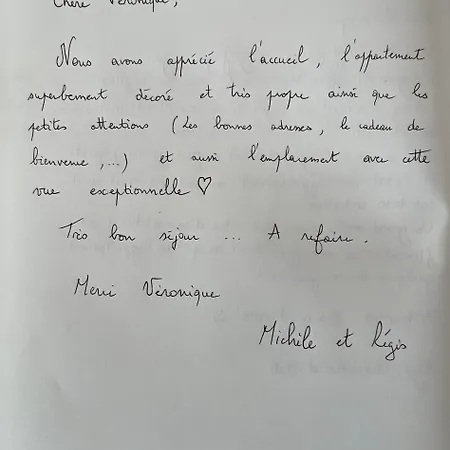 Chère Véronique,
Nous avons apprécié l'accueil, l'appartement
superbement décoré et très propre ainsi que les
petites attentions (Les bonnes adresses, le cadeau de
bienvenue,...) et aussi l'emplacement avec cette
vue exceptionnelle ♡
Très bon séjour ... A refaire.
Merci Véronique
Michèle et Régis